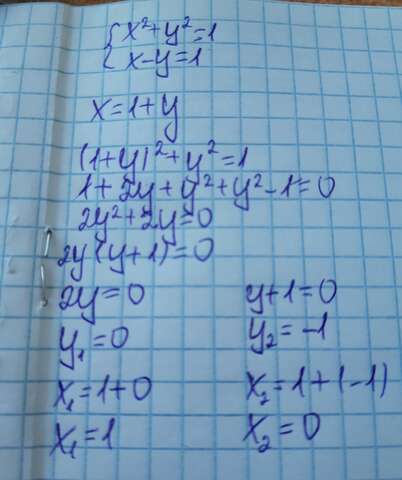 {x²+y²=1
{x-y=1
x=1+y
(1+y)²+y²=1
1+2y+y²+y²-1=0
2y²+2y=0
2y(y+1)=0
2y=0 y+1=0
y₁=0 y₂=-1
x₁=1+0 x₂=1+(-1)
x₁=1 x₂=0